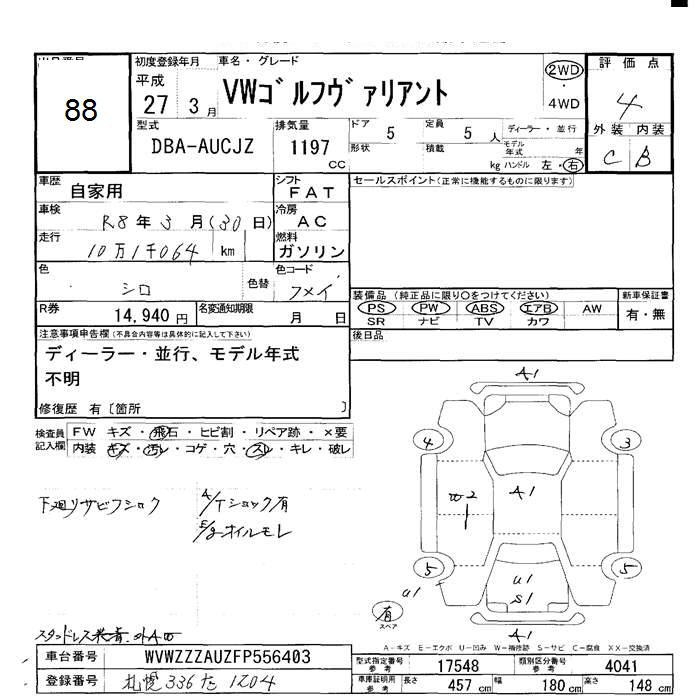 88
初度登録年月 車名・グレード
平成
27 3月
VWゴルフヴァリアント
2WD
・
4WD
評価点
4
外装 内装
C B
型式
DBA-AUCJZ
排気量
1197 CC
ドア 5 定員 5 人
形状 積載 kg
ディーラー・並行
モデル年式 年
ハンドル 左・右
車歴 自家用
シフト FAT
車検 R8年3月(30日)
冷房 AC
走行 10万1千064 km
燃料 ガソリン
色 シロ 色替
色コード フメイ
R券 14,940円
名変通知期限 月 日
セールスポイント(正常に機能するものに限ります)
装備品(純正品に限り○をつけてください)
PS PW ABS エアB AW
SR ナビ TV カワ
新車保証書
有・無
後日品
注意事項申告欄(不具合内容等は具体的に記入して下さい)
ディーラー・並行、モデル年式
不明
修復歴 有〔箇所 〕
検査員記入欄
FW キズ・飛石・ヒビ割・リペア跡・×要
内装 キズ・汚レ・コゲ・穴・スレ・キレ・破レ
下廻リサビフショク
A/Tショック有
E/gオイルモレ
A1
4 3
W2 A1
5 5
U1
U1
S1
有
スペア
A1
A-キズ E-エクボ U-凹み W-補修跡 S-サビ C-腐食 XX-交換済
車台番号 WVWZZZAUZFP556403
登録番号 札幌 336 た 1204
型式指定番号 参考 17548 類別区分番号 参考 4041
車庫証明用 参考 長さ 457cm 幅 180cm 高さ 148cm